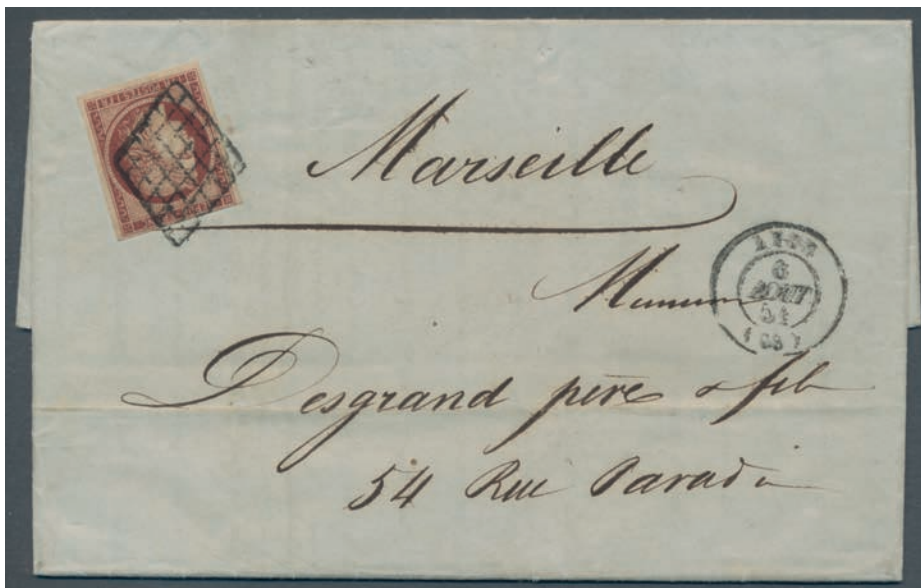 Marseille
LYON
6
AOUT
51
(68)
Desgrand père & fils
54 Rue Paradis